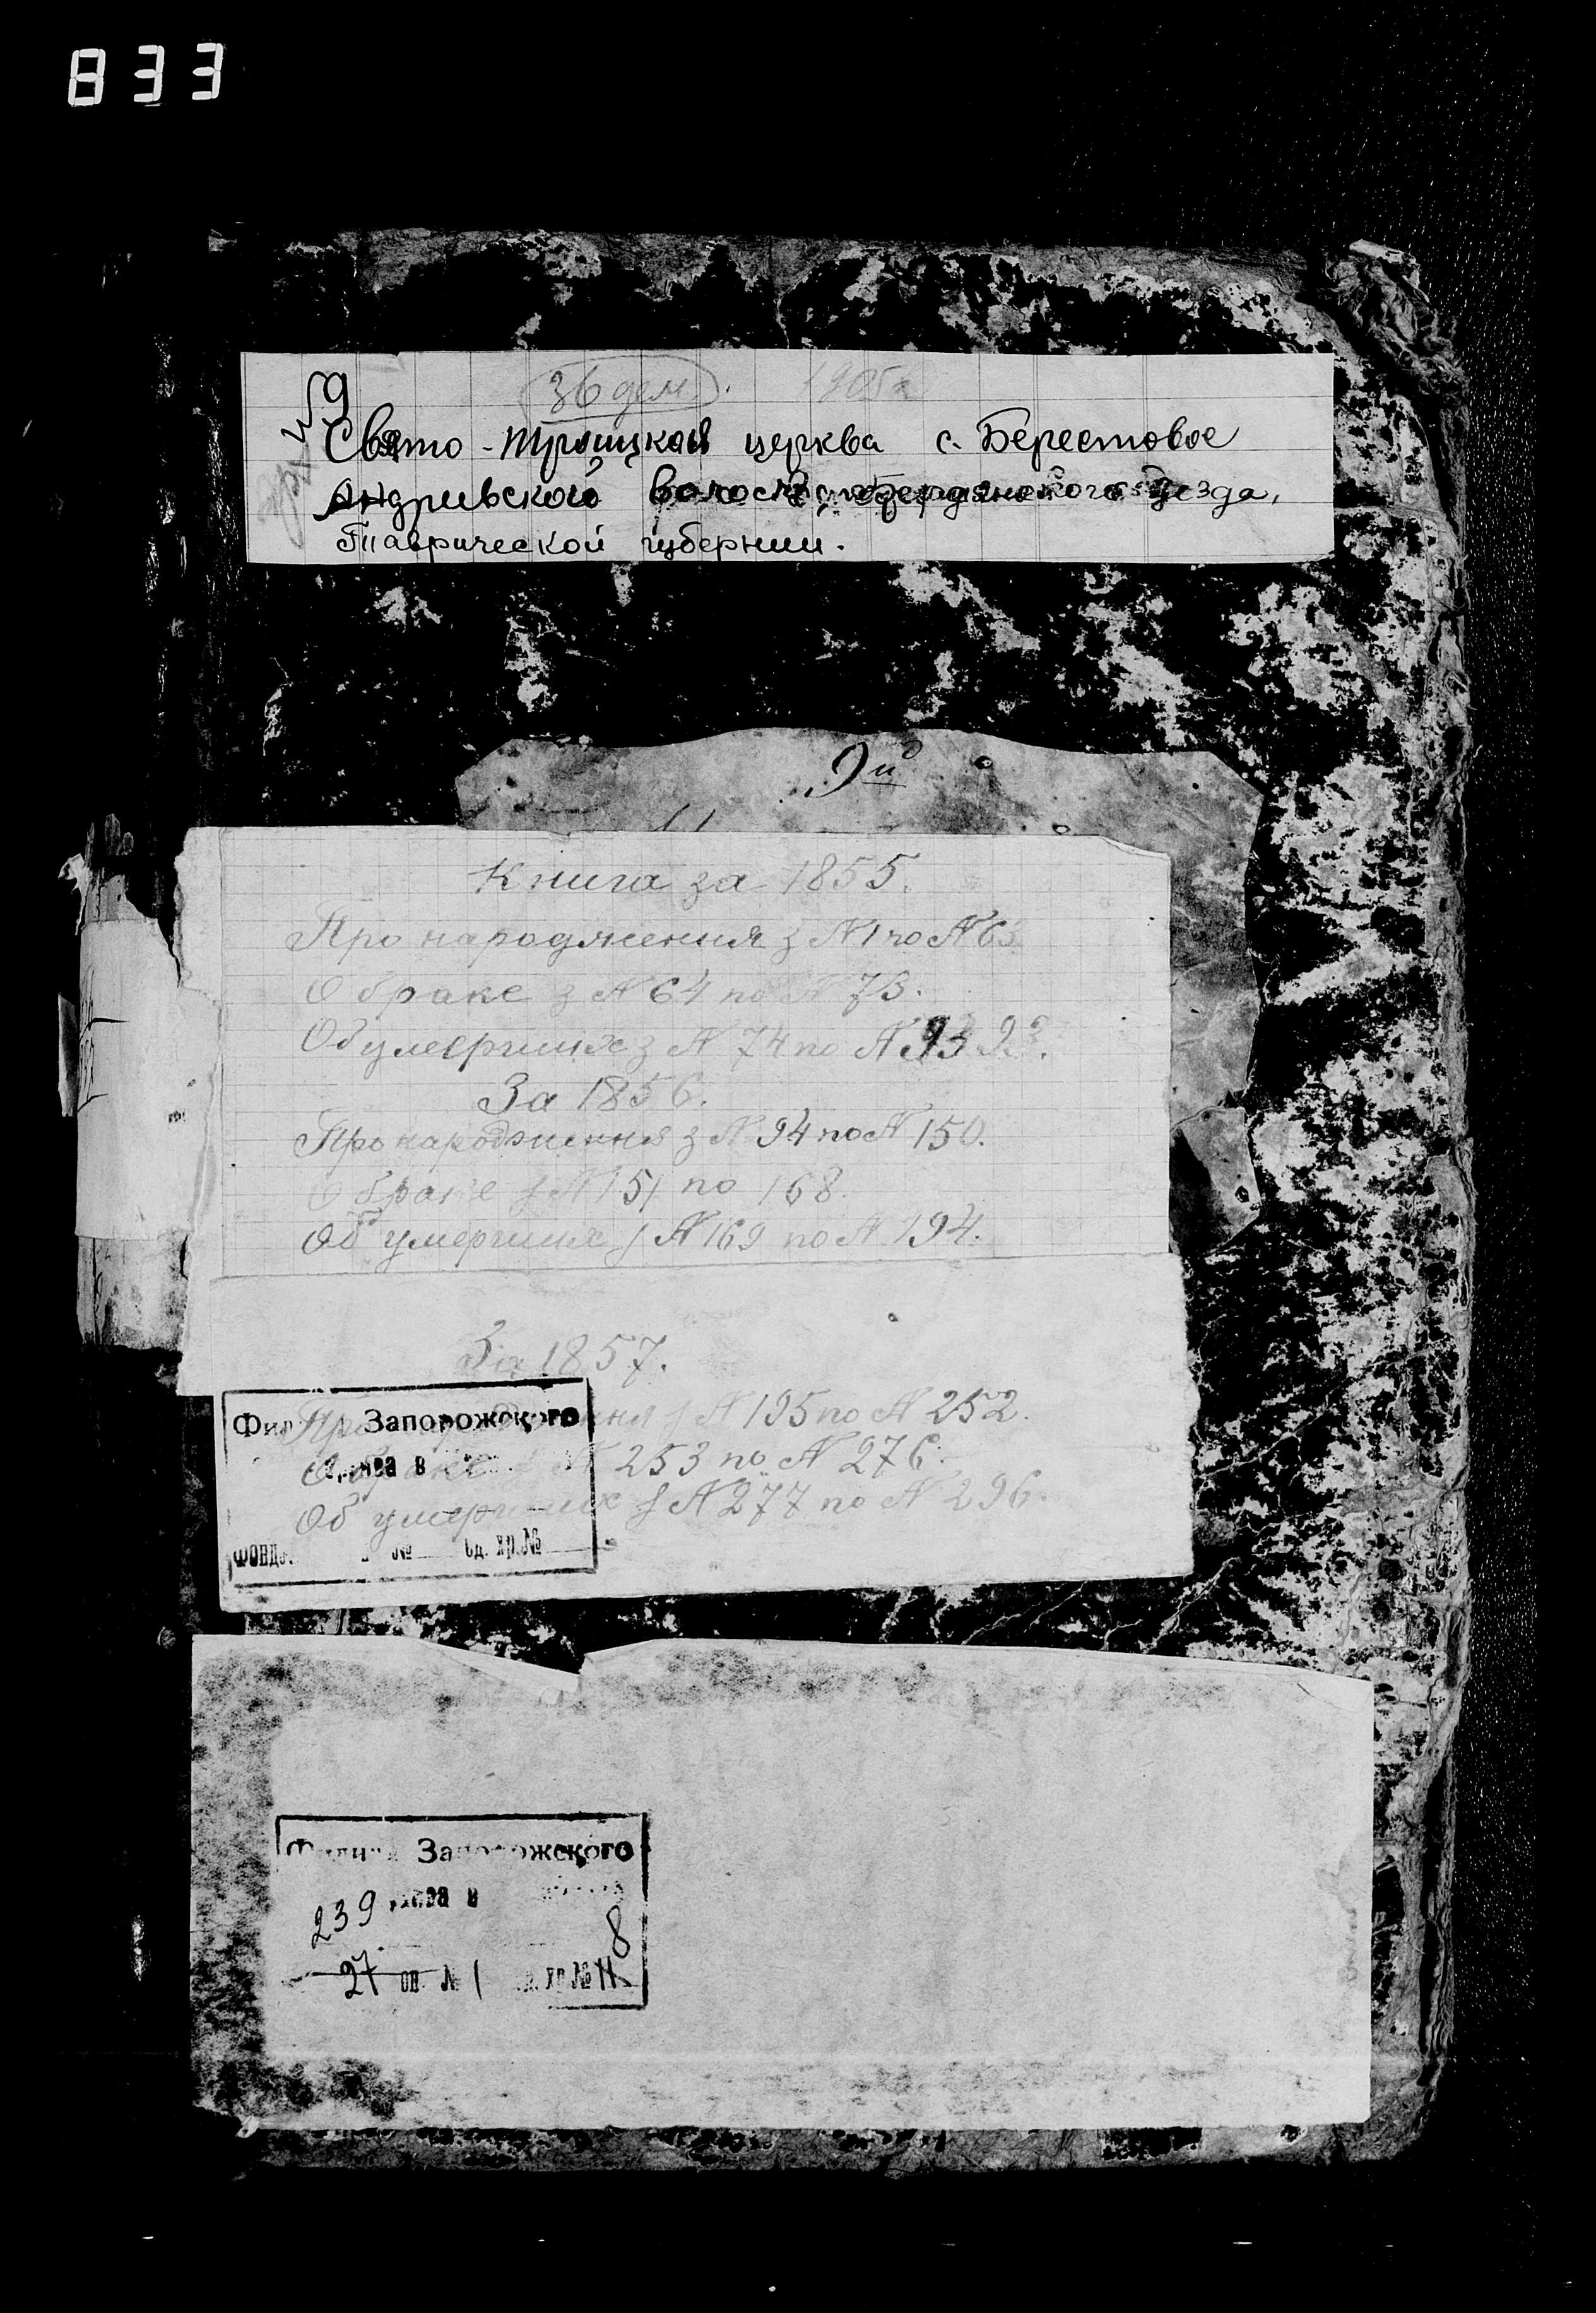 833
9
36 дел. 1905г
Свято-троицкая церква с. Берестовое
Андривского волости, бердянского уезда,
Таврической губернии.
9й
Книга за 1855.
Про народження з N1 по N63
О браке з N64 по N73.
Об умерших з N 74 по N 93 93.
За 1856.
Про народження з N 94 по N 150.
О браке з N151 по 168.
Об умерших з N169 по N 194.
За 1857.
Про народження з N195 по N 252.
О браке з N 253 по N 276.
Об умерших з N 277 по N 296.
Филиал Запорожского
архива в
Фонд № ед. хр. №
Филиал Запорожского
239 архива в
8
27 оп № 1 ед. хр. № 11